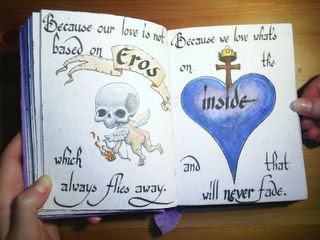 Because our love is not
based on Eros
which
always flies away.
Because we love what's
on the
inside
and that
will never fade.